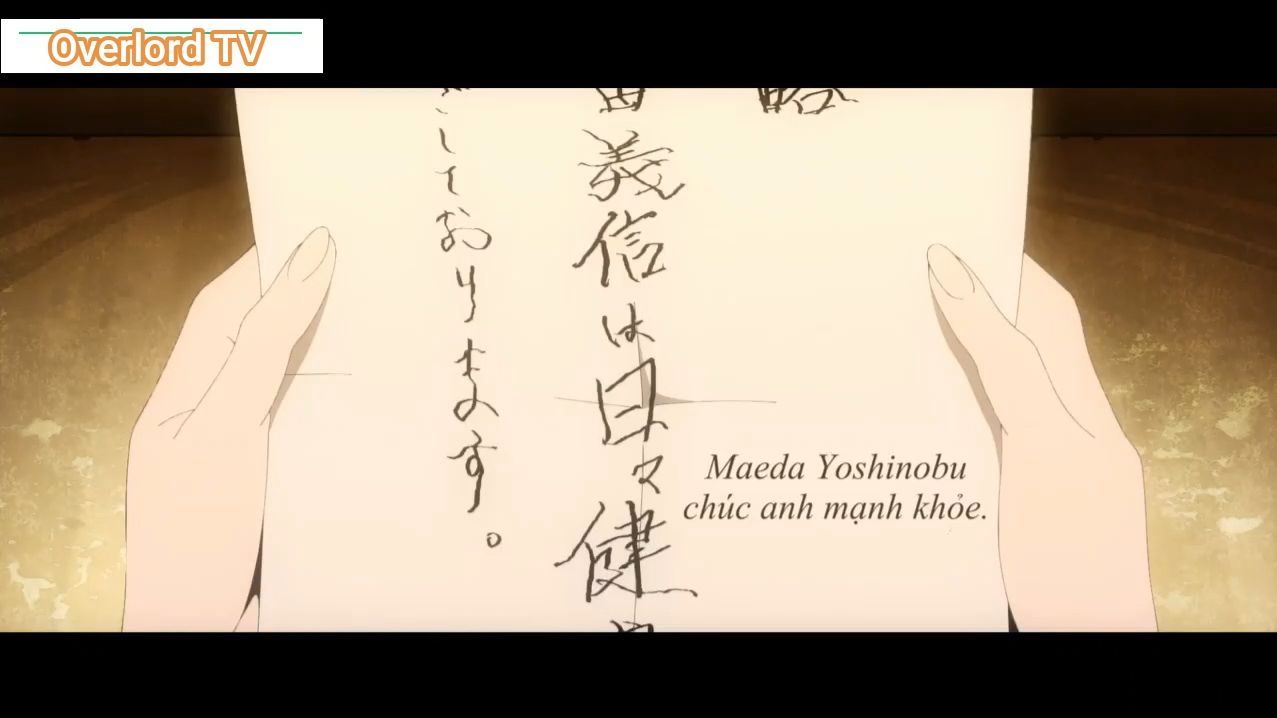 Overlord TV
略
田義信は日々健
しております。
Maeda Yoshinobu
chúc anh mạnh khỏe.